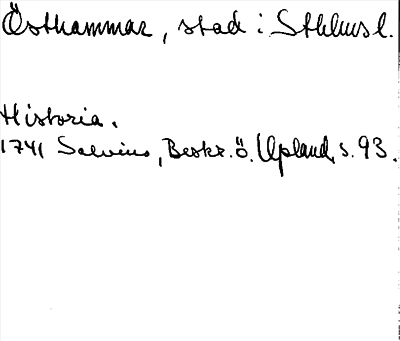 Östhammar, stad i Sthlms l.
Historia.
1741 Salvius, Beskr. ö. Upland, s. 93.